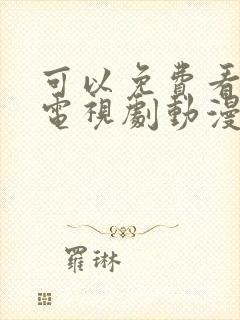 可以免費看
電視劇動漫
羅琳